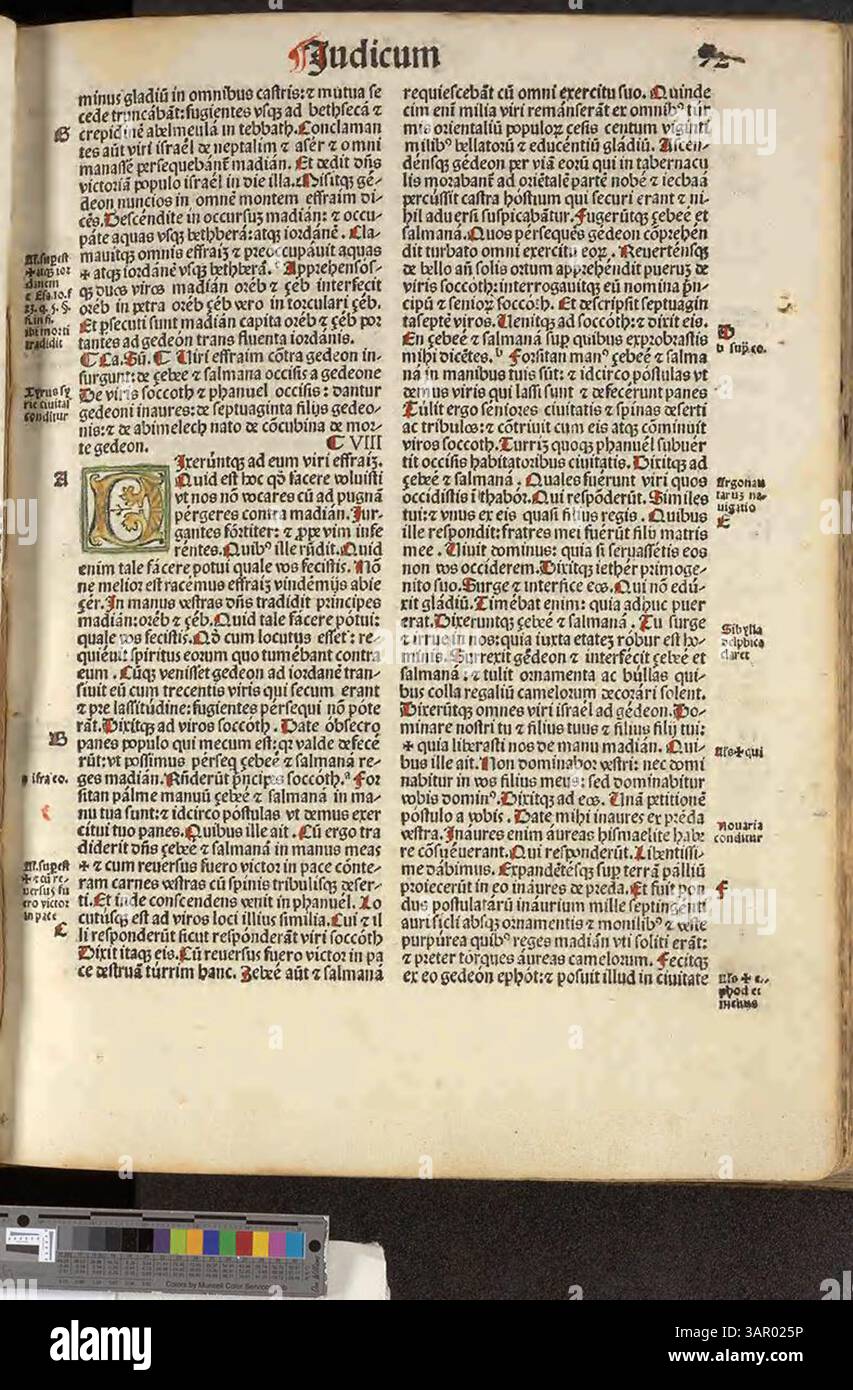 ¶Judicum
minus gladiū in omnibus castris: ⁊ mutua se
cede truncābāt: fugientes vsq̄ ad bethsecā ⁊
G
crepidinē abelmeula in tebbath. Conclaman
tes aūt viri israēl de neptalim ⁊ aser ⁊ omni
manasse persequebant̄ madian. Et dedit dn̄s
victoriā populo israēl in die illa. Misitq̄ ge-
deon nuncios in omnē montem effraim di-
cēs. Descendite in occursuȝ madian: ⁊ occu-
pate aquas vsq̄ bethberā: atq̄ iordanē. Cla-
mauitq̄ omnis effraiȝ ⁊ preoccupauit aquas
✠ atq̄ iordanē vsq̄ bethberā. Apprehensos-
q̄ duos viros madian orēb ⁊ çeb interfecit
orēb in petra orēb çeb vero in torculari çeb.
Et ꝑsecuti sunt madian capita orēb ⁊ çeb por
tantes ad gedeōn trans fluenta iordanis.
¶ Ca. Sū. ¶ Viri effraim cōtra gedeon in-
surgunt: de çebee ⁊ salmana occisis a gedeone
De viris soccoth ⁊ phanuel occisis: dantur
gedeoni inaures: de septuaginta filijs gedeo-
nis: ⁊ de abimelech nato de cōcubina ⁊ de mor-
te gedeon. ¶ VIII
A
Dixerūntq̄ ad eum viri effraiȝ.
Quid est hoc qđ facere voluisti
vt nos nō vocares cū ad pugnā
pergeres contra madian. Iur-
gantes fortiter: ⁊ ꝓpe vim infe
rentes. Quibꝰ ille rn̄dit. Quid
enim tale facere potui quale vos fecistis. Nō
ne melior est racemus effraiȝ vindemijs abie
çer. In manus vestras dn̄s tradidit principes
madian: oreb ⁊ çeb. Quid tale facere potui:
quale vos fecistis. Qđ cum locutus esset: re-
quieuit spiritus eorum quo tumēbant contra
eum. Cūq̄ venisset gedeon ad iordanē tran-
siuit eū cum trecentis viris qui secum erant
⁊ pre lassitudine: fugientes persequi nō pote
B
rāt. Dixitq̄ ad viros soccoth. Date obsecro
panes populo qui mecum est: qꝛ valde defece
rūt: vt possimus perseq̄ çebeē ⁊ salmanā re-
ges madian. Rn̄derūt pn̄cipes soccoth. ᵃ For
sitan palme manuū çebeē ⁊ salmana in ma-
nu tua sunt: ⁊ idcirco postulas vt demus exer
citui tuo panes. Quibus ille ait. Cū ergo tra
diderit dn̄s çebeē ⁊ salmanā in manus meas
✠ ⁊ cum reuersus fuero victor in pace conte-
ram carnes vestras cū spinis tribulisq̄ deser-
ti. Et inde conscendens venit in phanuel. Lo
cutusq̄ est ad viros loci illius similia. Cui ⁊ il
C
li responderūt sicut responderāt viri soccoth
Dixit itaq̄ eis. Cū reuersus fuero victor in pa
ce destruā turrim hanc. Zebeē aūt ⁊ salmanā
requiescebāt cū omni exercitu suo. Quinde
cim enī milia viri remanserāt ex omnibꝰ tur
mis orientaliū populoꝝ cesis centum viginti
milibꝰ bellatorū ⁊ educentiū gladiū. Ascen-
densq̄ gedeon per viā eorū qui in tabernacu
lis morabant̄ ad oriētalē partē nobe ⁊ iecbaā
percussit castra hostium qui securi erant ⁊ ni-
hil aduersi suspicabātur. Fugerūtq̄ çebeē et
salmanā. Quos persequēs gedeon cōprehen
dit turbato omni exercitu eoꝝ. Reuertensq̄
de bello an̄ solis ortum apprehendit pueruȝ de
viris soccoth: interrogauitq̄ eū nomina pn̄-
cipū ⁊ senioꝝ soccoth. Et descripsit septuagin
taseptē viros. Uenitq̄ ad soccoth: ⁊ dixit eis.
En çebeē ⁊ salmanā sup̄ quibus exprobrastis
mihi dicētes. ᵇ Forsitan manꝰ çebeē ⁊ salma
nā in manibus tuis sūt: ⁊ idcirco postulas vt
demus viris qui lassi sunt ⁊ defecerunt panes
Tulit ergo seniores ciuitatis ⁊ spinas deserti
ac tribulos: ⁊ cōtriuit cum eis atq̄ cōminuit
viros soccoth. Turriȝ quoq̄ phanuel subuer
tit occisis habitatoribus ciuitatis. Dixitq̄ ad
çebeē ⁊ salmanā. Quales fuerunt viri quos
occidistis ī thabor. Qui respōderūt. Similes
tui: ⁊ vnus ex eis quasi filius regis. Quibus
ille respondit: fratres mei fuerūt filij matris
mee. Uiuit dominus: quia si seruassetis eos
non vos occiderem. Dixitq̄ iether primoge-
nito suo. Surge ⁊ interfice eos. Qui nō edu-
xit gladiū. Timēbat enim: quia adhuc puer
erat. Dixeruntq̄ çebeē ⁊ salmanā. Tu surge
⁊ irrue in nos: quia iuxta etateȝ robur est ho-
minis. Surrexit gedeon ⁊ interfecit çebeē et
salmanā: ⁊ tulit ornamenta ac bullas qui-
bus colla regaliū camelorum decorari solent.
Dixerūtq̄ omnes viri israēl ad gedeon. Do-
minare nostri tu ⁊ filius tuus ⁊ filius filij tui:
✠ quia liberasti nos de manu madian. Qui-
bus ille ait. Non dominabor vestri: nec domi
nabitur in vos filius meus: sed dominabitur
vobis dominꝰ. Dixitq̄ ad eos. Unā petitionē
postulo a vobis. Date mihi inaures ex preda
vestra. Inaures enim aureas hismaelite habe
re cōsueuerant. Qui responderūt. Libentissi-
me dabimus. Expandentēsq̄ sup̄ terrā palliū
proiecerūt in eo inaures de preda. Et fuit pon
dus postulatarū inaurium mille septingenti
auri sicli absq̄ ornamentis ⁊ monilibꝰ ⁊ veste
purpurea quibꝰ reges madian vti soliti erāt:
⁊ preter torques aureas camelorum. Fecitq̄
ex eo gedeon ephot: ⁊ posuit illud in ciuitate
Al. sup est
✠ atq̄ ior
danem
c Esa. 10. f
tradidit
Tyrus sy
rie ciuitas
conditur
a isra co.
Al. sup est
✠ ⁊ cū re-
uersus fu
ero victor
in pace
D
b sup̄ co.
Argonau
taruȝ na-
uigatio
E
Sibylla
delphica
claret
Als ✠ qui
Nouaria
conditur
F
Als ✠ e-
phod et
alamy
Image ID: 3AR025P
www.alamy.com